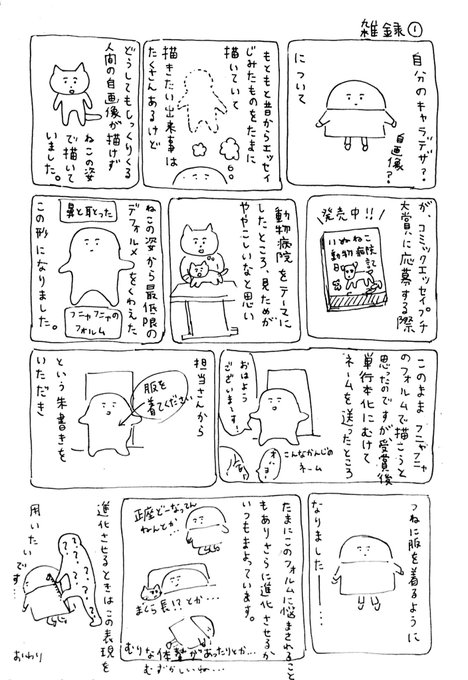 雑録①
自分のキャラデザ？
自画像？
について
もともと昔からエッセイ
じみたものをたまに
描いていて
描きたい出来事は
たくさんあるけど
どうしてもしっくりくる
人間の自画像が描けず
ねこの姿
で描いて
いました。
が、コミックエッセイプチ
大賞に応募する際
発売中!!
いぬねこ
動物病院
日記
動物病院をテーマに
したところ、見ためが
ややこしいなと思い
ねこの姿から最低限の
デフォルメをくわえた
鼻と耳とった
フニャフニャの
フォルム
この形になりました。
このまま フニャフニャ
のフォルムで描こうと
思ったのですが受賞後
単行本化にむけて
ネームを送ったところ
おはよう
ございまーす。
こんなかんじの
ネーム
担当さんから
服を
着てください
という朱書きを
いただき
つねに服を着るように
なりました———…
たまにこのフォルムに悩まされること
もありさらに進化させるか
いつもまよっています。
正座どーなってん
ねんとか…
まくら長!?とか…
むりな体勢があったりとか…
むずかしいね…
進化させるときはこの表現を
用いたいです…
おわり